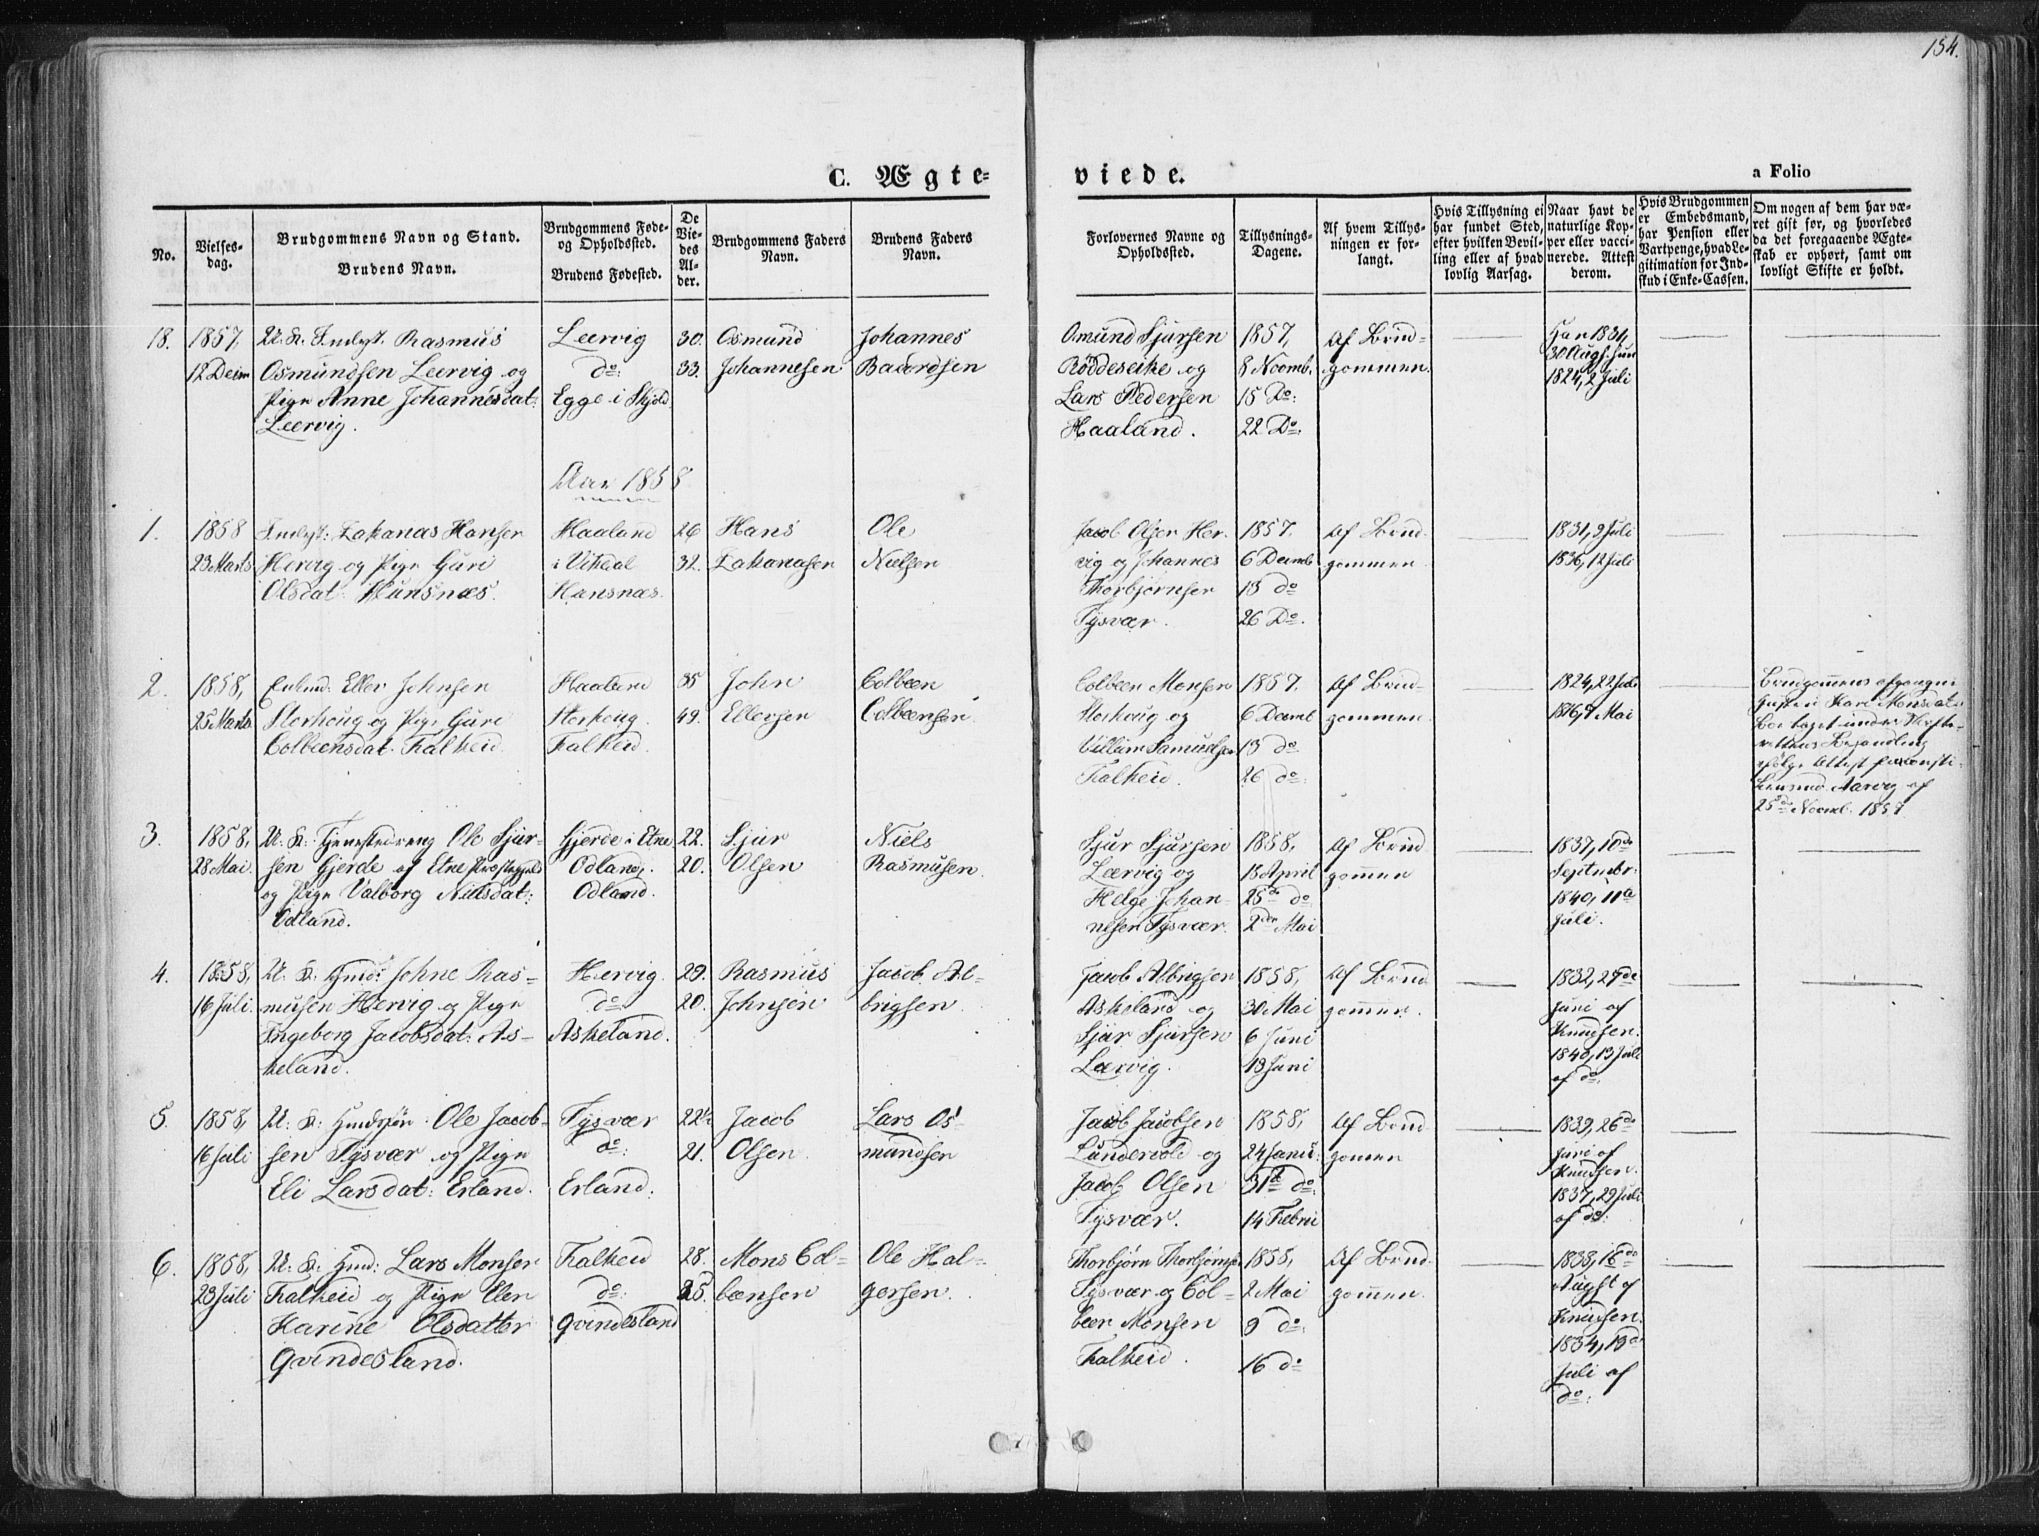 154.
C. Ægte-
viede.
a Folio
No.
Vielses-
dag.
Brudgommens Navn og Stand.
Brudens Navn.
Brudgommens Føde-
og Opholdssted.
Brudens Fødested.
De
Vie-
des
Al-
der.
Brudgommens Faders
Navn.
Brudens Faders
Navn.
Forlovernes Navne og
Opholdssted.
Tillysnings-
Dagene.
Af hvem Tillys-
ningen er for-
langt.
Hvis Tillysning ei
har fundet Sted,
efter hvilken Bevil-
ling eller af hvad
lovlig Aarsag.
Naar havt de
naturlige Kop-
per eller vacci-
nerede. Attest
derom.
Hvis Brudgommen
er Embedsmand,
har Pension eller
Vartpenge, hvad Le-
gitimation for Ind-
skud i Enke-Cassen.
Om nogen af dem har væ-
ret gift før, og hvorledes
da det foregaaende Ægte-
skab er ophørt, samt om
lovligt Skifte er holdt.
18.
1857,
12 Decm
U. K. Indlyst. Rasmus
Osmundsen Leervig og
Pige Anne Johannesdat:
Leervig.
Leervig
do:
Egge i Skjold
30.
33.
Osmund
Johannesen
Johannes
Baardsen
Osmund Sjursen
Røddeseike og
Lars Pedersen
Haaland.
1857,
8 Novmb.
15 Do:
22 Do.
Af Brud-
gommen.
Han 1831,
30 Augs. hun
1824, 2 Juli
Aar 1858
1.
1858
23 Marts
Indlyst: Zakarias Hansen
Hervig og Pige Guri
Olsdat: Hunsnæs.
Haaland
i Vikedal
Hunsnæs.
26
32.
Hans
Zakariasen
Ole
Nielsen
Jacob Olsen Her-
vig og Johannes
Thorbjørnsen
Tysvær.
1857.
6 Decmb
13 do
26 Do.
Af Brud-
gommen.
1831, 2 Juli
1836, 12 Juli
2.
1858,
25 Marts
Enkmd: Eller Johnsen
Storhoug og Pige Guri
Colbeensdat: Falkeid.
Haaland
Storhoug.
Falkeid.
35
49.
John
Ellersen
Colbeen
Colbeensen.
Colbeen Monsen
Storhoug og
Villum Samuelsen
Falkeid.
1857.
6 Decmb
13 do
26 do:
Af Brud-
gommen.
1824, 22 Juli
1816, 7 Mai
Brudgommens afgangne
Hustru Kari Monsdat:
Bo taget under Skifte-
rettens Behandling
ifølge Attest fra
Lensmd. Aarvig af
25de Novmb. 1857
3.
1858,
28 Mai
U. K: Tjenestedreng Ole Sjur-
sen Gjerde af Etne Præstegjeld
og Pige Valborg Nilsdat:
Odland.
Gjerde i Etne
Odland.
Odland.
22.
20.
Sjur
Olsen
Niels
Rasmusen.
Sjur Sjursen
Lærvig og
Helge Johan-
nesen Tysvær.
1858,
18 April
25de do:
2den Mai
Af Brud-
gommen
1837, 10de
Septmbr:
1840, 11te
Juli.
4.
1858,
16 Juli
U. K. Gmd: Johne Ras-
musen Hervig og Pige
Ingeborg Jacobsdat: As-
keland.
Hervig.
do:
Askeland.
29.
20.
Rasmus
Johnsen
Jacob Al-
brigsen
Jacob Albrigsen
Askeland og
Sjur Sjursen
Lærvig.
1858,
30 Mai
6 Juni
13 Juni
Af Brud-
gommen.
1832, 27de
Juni af
Knudsen.
1840, 13 Juli
af do.
5.
1858,
16 Juli
U. K: Gmdssøn Ole Jacob-
sen Tysvær og Pige
Eli Larsdat: Erland.
Tysvær
do:
Erland.
22½
21.
Jacob
Olsen.
Lars Os-
mundsen
Jacob Jacobsen
Lundervold og
Jacob Olsen
Tysvær.
1858,
24 Janu:
31te do:
14 Febru
Af Brud-
gomen
1839, 26de
Juni af
Knudsen.
1837, 29 Juli
af do:
6.
1858,
23 Juli
U. K: Gmd: Lars Monsen
Falkeid og Pige Elen
Karine Olsdatter
Qvindesland.
Falkeid
do:
Qvindesland
28.
25.
Mons Col-
bænsen
Ole Hal-
gorsen.
Thorbjørn Thorbjørnsen
Tysvær og Col-
been Monsen
Falkeid.
1858,
2 Mai
9 do:
16 do
Af Brud-
gommen.
1838, 16de
Augst af
Knudsen.
1834, 13de
Juli af
do: